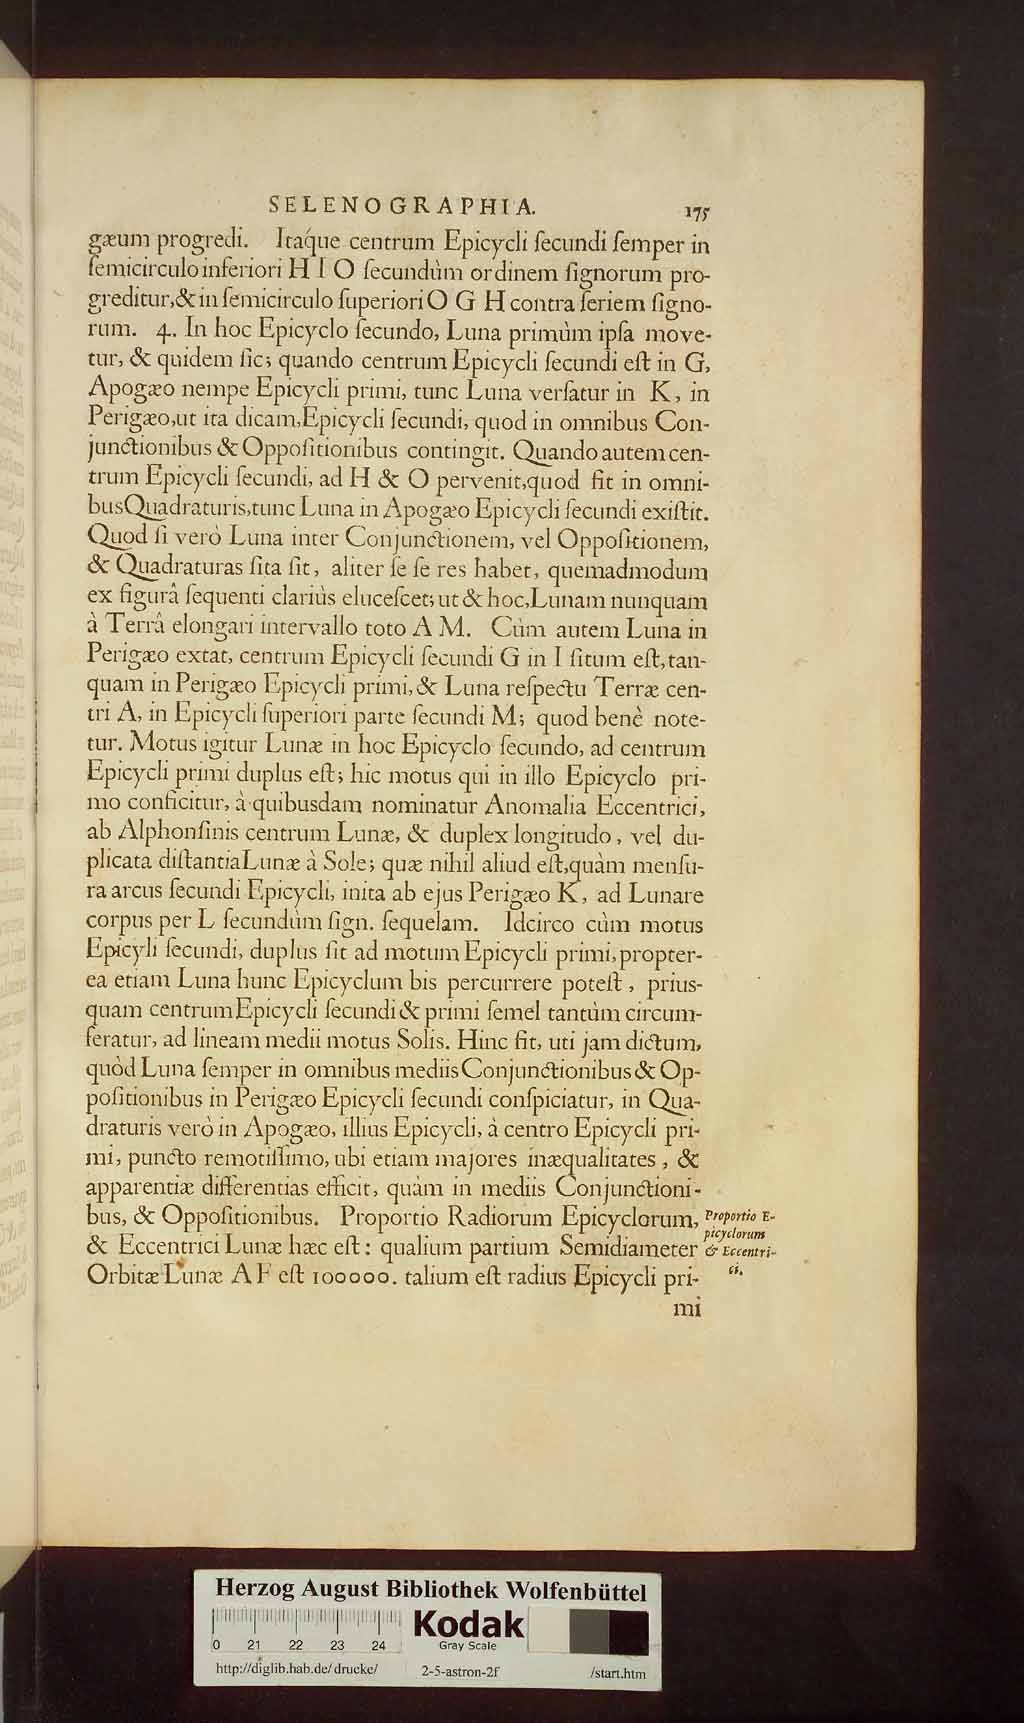 SELENOGRAPHIA. 175
gæum progredi. Itaq́ue centrum Epicycli ſecundi ſemper in
ſemicirculo inferiori H I O ſecundùm ordinem ſignorum pro-
greditur,& in ſemicirculo ſuperiori O G H contra ſeriem ſigno-
rum. 4. In hoc Epicyclo ſecundo, Luna primùm ipſa move-
tur, & quidem ſic; quando centrum Epicycli ſecundi eſt in G,
Apogæo nempe Epicycli primi, tunc Luna verſatur in K, in
Perigæo,ut ita dicam,Epicycli ſecundi, quod in omnibus Con-
junctionibus & Oppoſitionibus contingit. Quando autem cen-
trum Epicycli ſecundi, ad H & O pervenit,quod fit in omni-
bus Quadraturis,tunc Luna in Apogæo Epicycli ſecundi exiſtit.
Quod ſi verò Luna inter Conjunctionem, vel Oppoſitionem,
& Quadraturas ſita ſit, aliter ſe ſe res habet, quemadmodum
ex figurâ ſequenti clariùs eluceſcet; ut & hoc,Lunam nunquam
à Terrâ elongari intervallo toto A M. Cùm autem Luna in
Perigæo extat, centrum Epicycli ſecundi G in I ſitum eſt,tan-
quam in Perigæo Epicycli primi,& Luna reſpectu Terræ cen-
tri A, in Epicycli ſuperiori parte ſecundi M; quod benè note-
tur. Motus igitur Lunæ in hoc Epicyclo ſecundo, ad centrum
Epicycli primi duplus eſt; hic motus qui in illo Epicyclo pri-
mo conficitur, à quibusdam nominatur Anomalia Eccentrici,
ab Alphonſinis centrum Lunæ, & duplex longitudo, vel du-
plicata diſtantia Lunæ à Sole; quæ nihil aliud eſt,quàm menſu-
ra arcus ſecundi Epicycli, inita ab ejus Perigæo K, ad Lunare
corpus per L ſecundùm ſign. ſequelam. Idcirco cùm motus
Epicyli ſecundi, duplus ſit ad motum Epicycli primi,propter-
ea etiam Luna hunc Epicyclum bis percurrere poteſt, prius-
quam centrum Epicycli ſecundi & primi ſemel tantùm circum-
feratur, ad lineam medii motus Solis. Hinc fit, uti jam dictum,
quòd Luna ſemper in omnibus mediis Conjunctionibus & Op-
poſitionibus in Perigæo Epicycli ſecundi conſpiciatur, in Qua-
draturis verò in Apogæo, illius Epicycli, à centro Epicycli pri-
mi, puncto remotiſſimo, ubi etiam majores inæqualitates, &
apparentiæ differentias efficit, quàm in mediis Conjunctioni-
bus, & Oppoſitionibus. Proportio Radiorum Epicyclorum,
& Eccentrici Lunæ hæc eſt: qualium partium Semidiameter
Orbitæ Lunæ A F eſt 100000. talium eſt radius Epicycli pri-
mi
Proportio E-
picyclorum
& Eccentri-
ci.
Herzog August Bibliothek Wolfenbüttel
Kodak
Gray Scale
0 21 22 23 24
http://diglib.hab.de/drucke/ 2-5-astron-2f /start.htm